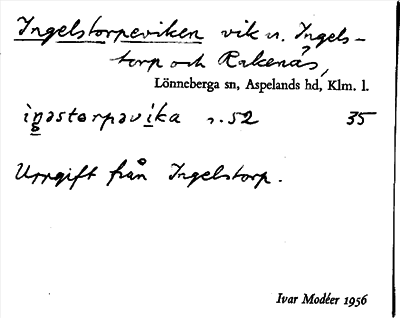 Ingelstorpeviken vik n. Ingels-
torp och Rakenäs,
Lönneberga sn, Aspelands hd, Klm. l.
iŋəstorpavika s. 52 35
Uppgift från Ingelstorp.
Ivar Modéer 1956